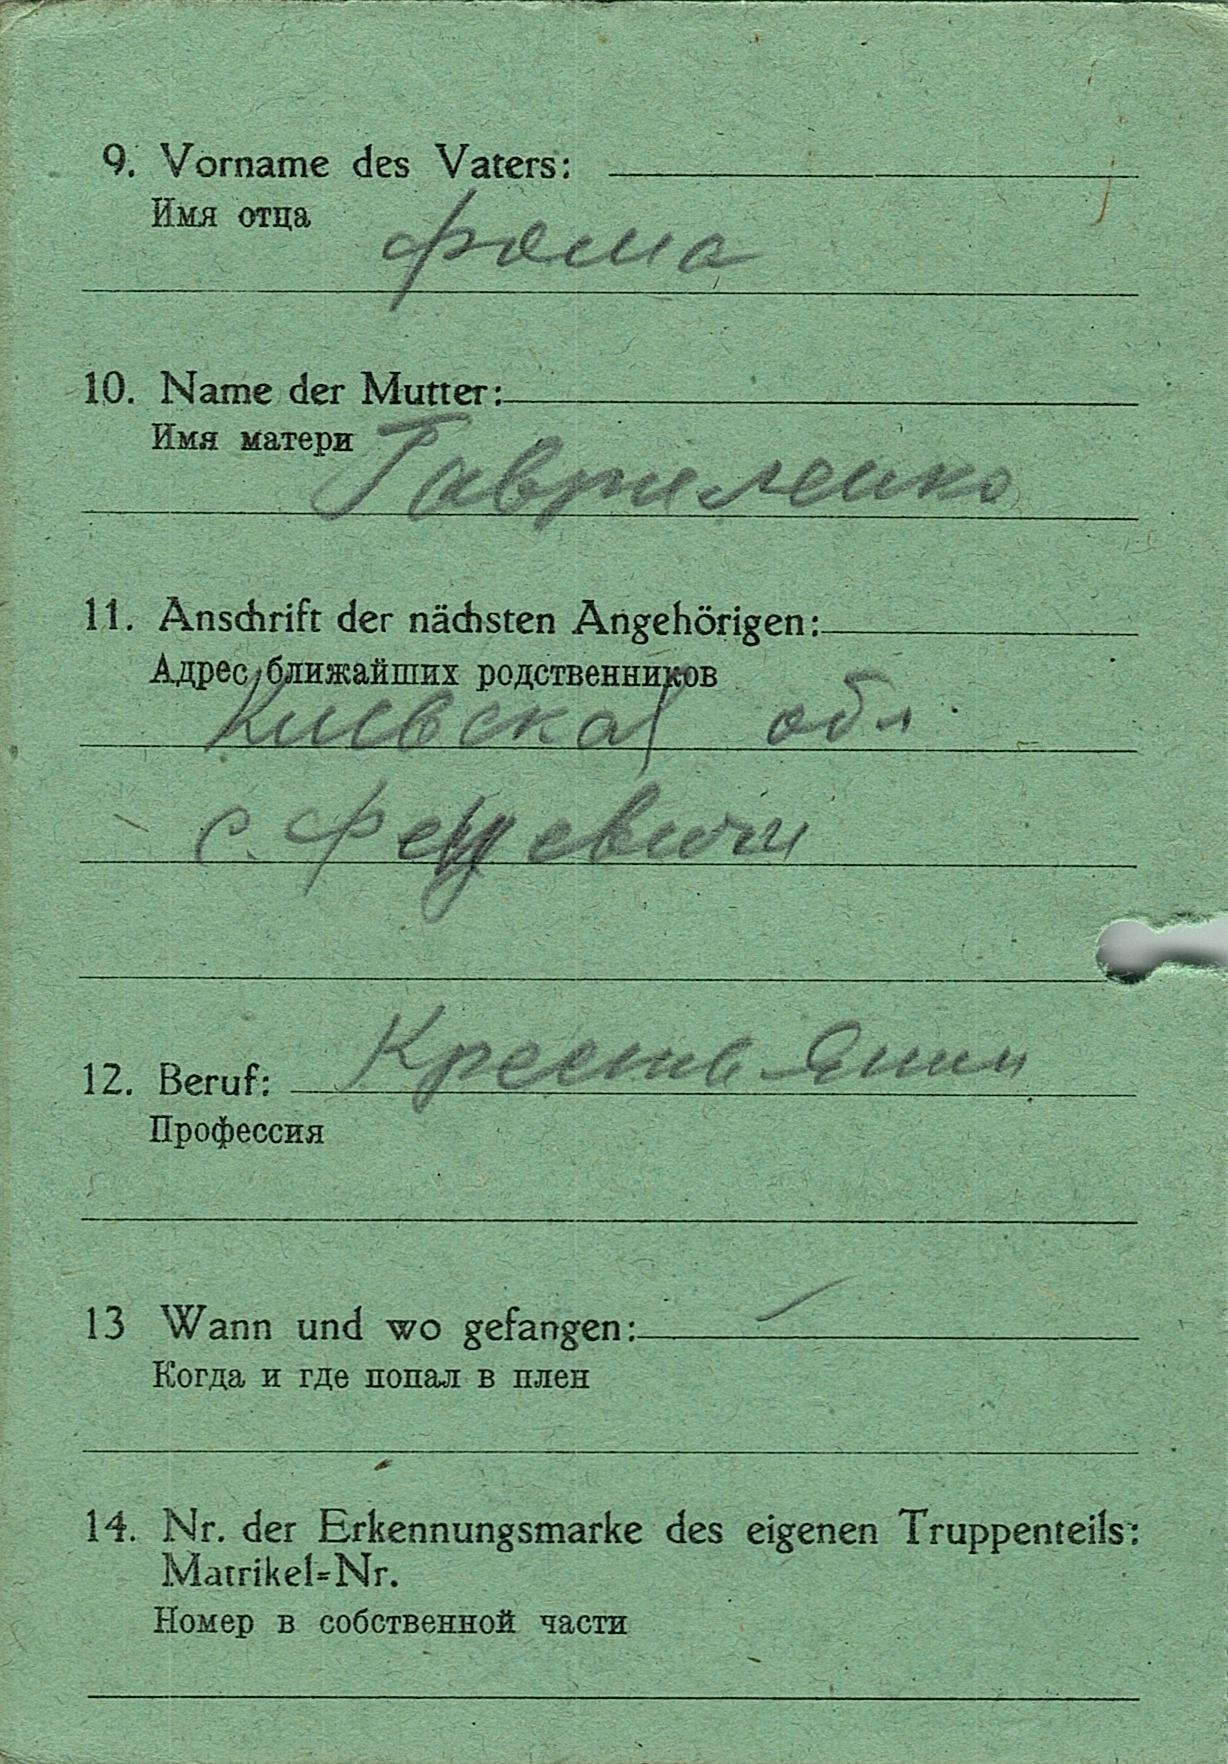 9. Vorname des Vaters:
Имя отца
фома
10. Name der Mutter:
Имя матери
Гавриленко
11. Anschrift der nächsten Angehörigen:
Адрес ближайших родственников
Киевская обл.
с.
12. Beruf: Крестьянин
Профессия
13 Wann und wo gefangen:
Когда и где попал в плен
14. Nr. der Erkennungsmarke des eigenen Truppenteils:
Matrikel=Nr.
Номер в собственной части